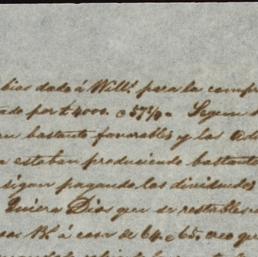 bias dado á Will.s para la compr
ado por £ 4000. a 57 1/2 Segun
en bastante favorables y las
a estaban produciendo bastante
sigan pagando los dividendos
Quiera Dios que se restable
a cosa de 64 a 65, creo que